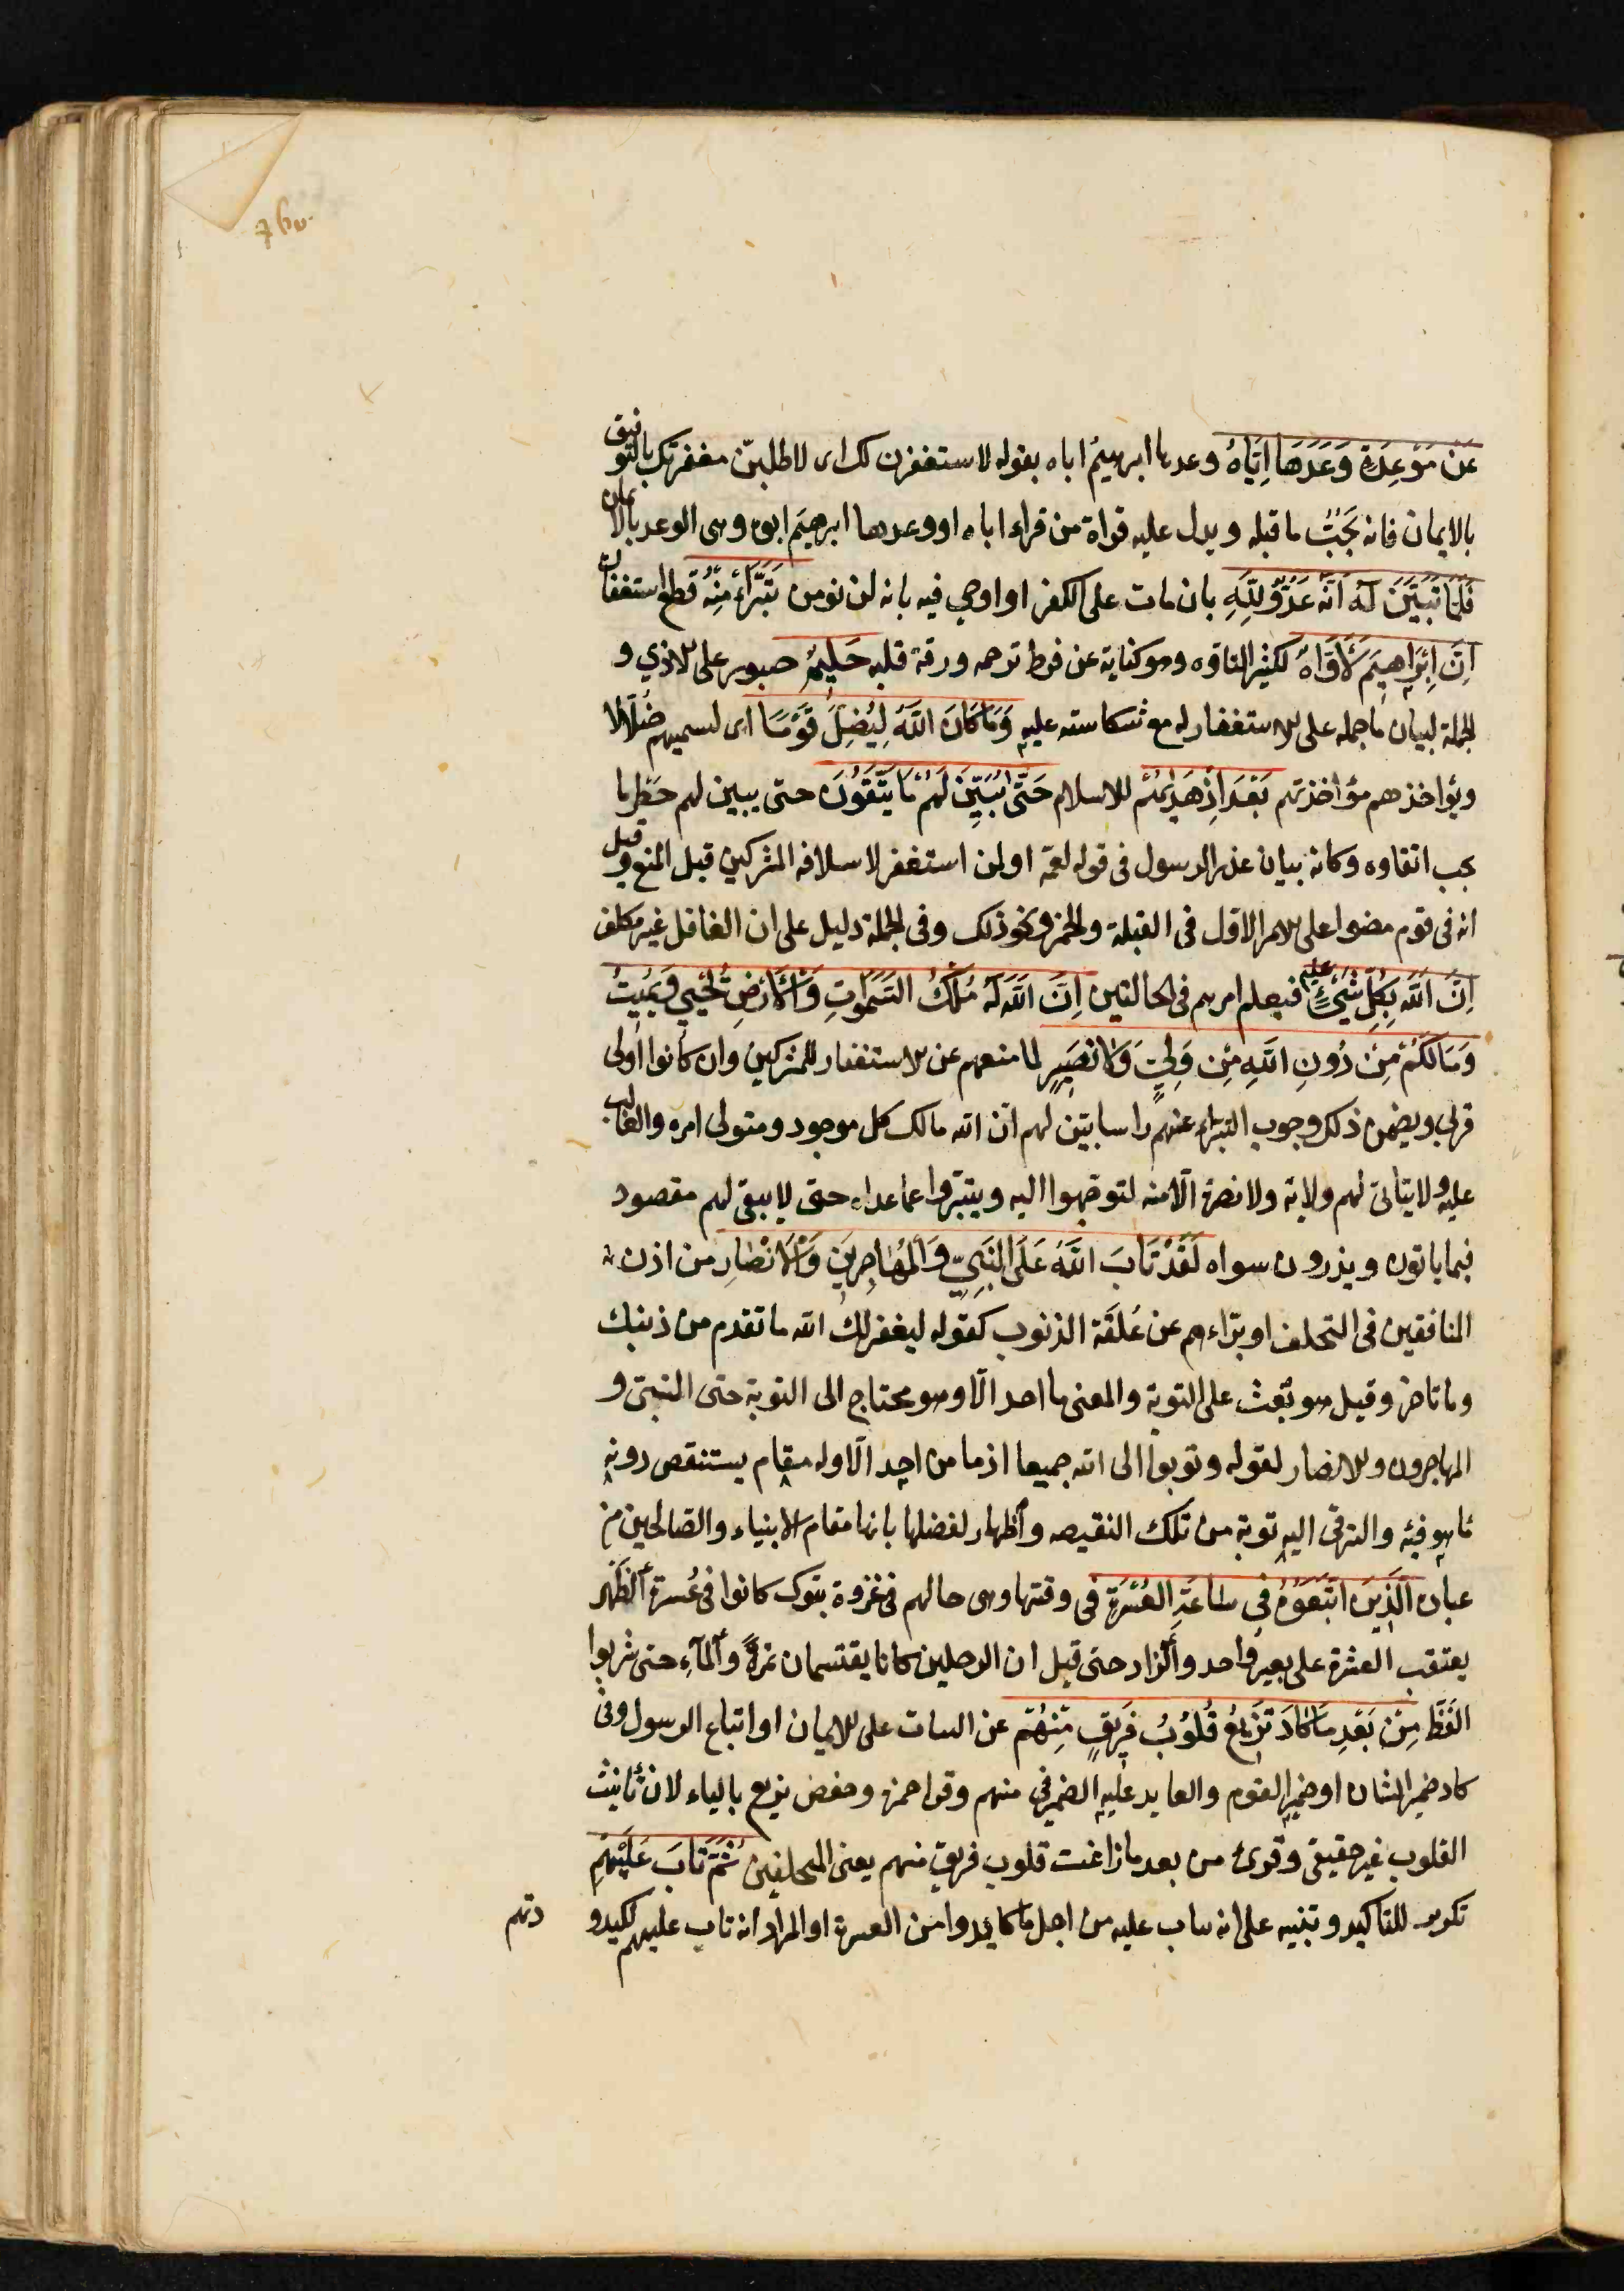 عَنْ مَوْعِدَةٍ وَعَدَهَا اِيَّاهُ وعدها ابرهيمُ اباه بقوله لاستغفرن لك اى لاطلبنّ مغفرتك بالتوفيق
بالايمان فانه يَجُبُّ ما قبله ويدل عليه قراة من قراء اباه او وعدها ابرهيمَ ابوه وهى الوعد بالايمان
فَلَمَّا تَبَيَّنَ لَهُ اَنَّهُ عَدُوٌّ لِلّٰهِ بان مات على الكفر او اوحي فيه بانه لن يومن تَبَرَّاَءَ مِنْهُ قطع استغفاره
اِنَّ اِبْرَاهِيمَ لَاَوَّاهٌ لكثير التاوه وهو كناية عن فرط ترحمه ورقة قلبه حَلِيمٌ صبور على الاذي و
الجملة لبيان ما حمله على الاستغفار له مع شكاسته عليه وَمَا كَانَ اللّٰهُ لِيُضِلَّ قَوْمًا اى ليسميهم ضُلّالا
ويؤاخذهم مؤاخذتهم بَعْدَ اِذْ هَدٰيهُمْ للاسلام حَتّٰى يُبَيِّنَ لَهُمْ مَا يَتَّقُونَ حتى يبين لهم حظر ما
يجب اتقاوه وكانه بيان عذر الرسول فى قوله لعمه او لمن استغفر لاسلافه المشركين قبل المنع وقيل
انه فى قوم مضوا على الامر الاول فى القبلة والخمر ونحو ذلك وفى الجملة دليل على ان الغافل غير مكلف
اِنَّ اللّٰهَ بِكُلِّ شَيْءٍ عليم فيعلم امرهم فى الحالتين اِنَّ اللّٰهَ لَهُ مُلْكُ السَّمٰوَاتِ وَالْاَرْضِ يُحْيِي وَيُمِيتُ
وَمَا لَكُمْ مِنْ دُونِ اللّٰهِ مِنْ وَلِيٍّ وَلَا نَصِيرٍ لما منعهم عن الاستغفار للمشركين وان كانوا اولى
قربى ويضمن ذلك وجوب التبراء عنهم راسا بيّن لهم انّ الله مالك كل موجود ومتولى امره والغالب
عليه ولا يتاتى لهم ولاية ولا نصرة الّا منه لتوجهوا اليه ويتبرّوا عما عداه حتى لا يبقى لهم مقصود
فيما ياتون ويذرون سواه لَقَدْ تَابَ اللّٰهُ عَلَى النَّبِيِّ وَالْمُهَاجِرِينَ وَالْاَنْصَارِ من اذن
المنافقين فى التخلف او براءهم عن عُلقَة الذنوب كقوله ليغفر لك الله ما تقدم من ذنبك
وما تاخر وقيل هو بَعْث على التوبة والمعنى ما احد الّا وهو محتاج الى التوبة حتى النبىّ و
المهاجرون والانصار لقوله وتوبوا الى الله جميعا اذ ما من احد الّا وله مقام يستنقص دونه
ما هو فيه والترقى اليه توبة من تلك النقيصه واظهار لفضلها بانها مقام الانبياء والصّالحين من
عباده الَّذِينَ اتَّبَعُوهُ فِي سَاعَةِ الْعُسْرَةِ فى وقتها وهى حالهم فى غزوة تبوك كانوا فى عُسرة الظَهر
يعتقب العشرة على بعير واحد والزاد حتى قيل ان الرجلين كانا يقتسمان تمرةً والمآءِ حتى شربوا
الفَظّ مِنْ بَعْدِ مَا كَادَ تَزِيغُ قُلُوبُ فَرِيقٍ مِنْهُمْ عن الثبات على الايمان او اتباع الرسول وفى
كاد ضمير الشان او ضمير القوم والعايد عليه الضمير فى منهم وقرا حمزة وحفص يزيع بالياء لان تانيث
القلوب غير حقيقى وقرئ من بعد ما زاغت قلوب فريق منهم يعنى المتخلفين ثُمَّ تَابَ عَلَيْهِمْ
تكرير للتاكيد وتنبيه على انه تاب عليه من اجل ما كابدوا من العسرة او المراد انه تاب عليهم لكيدو
دتهم